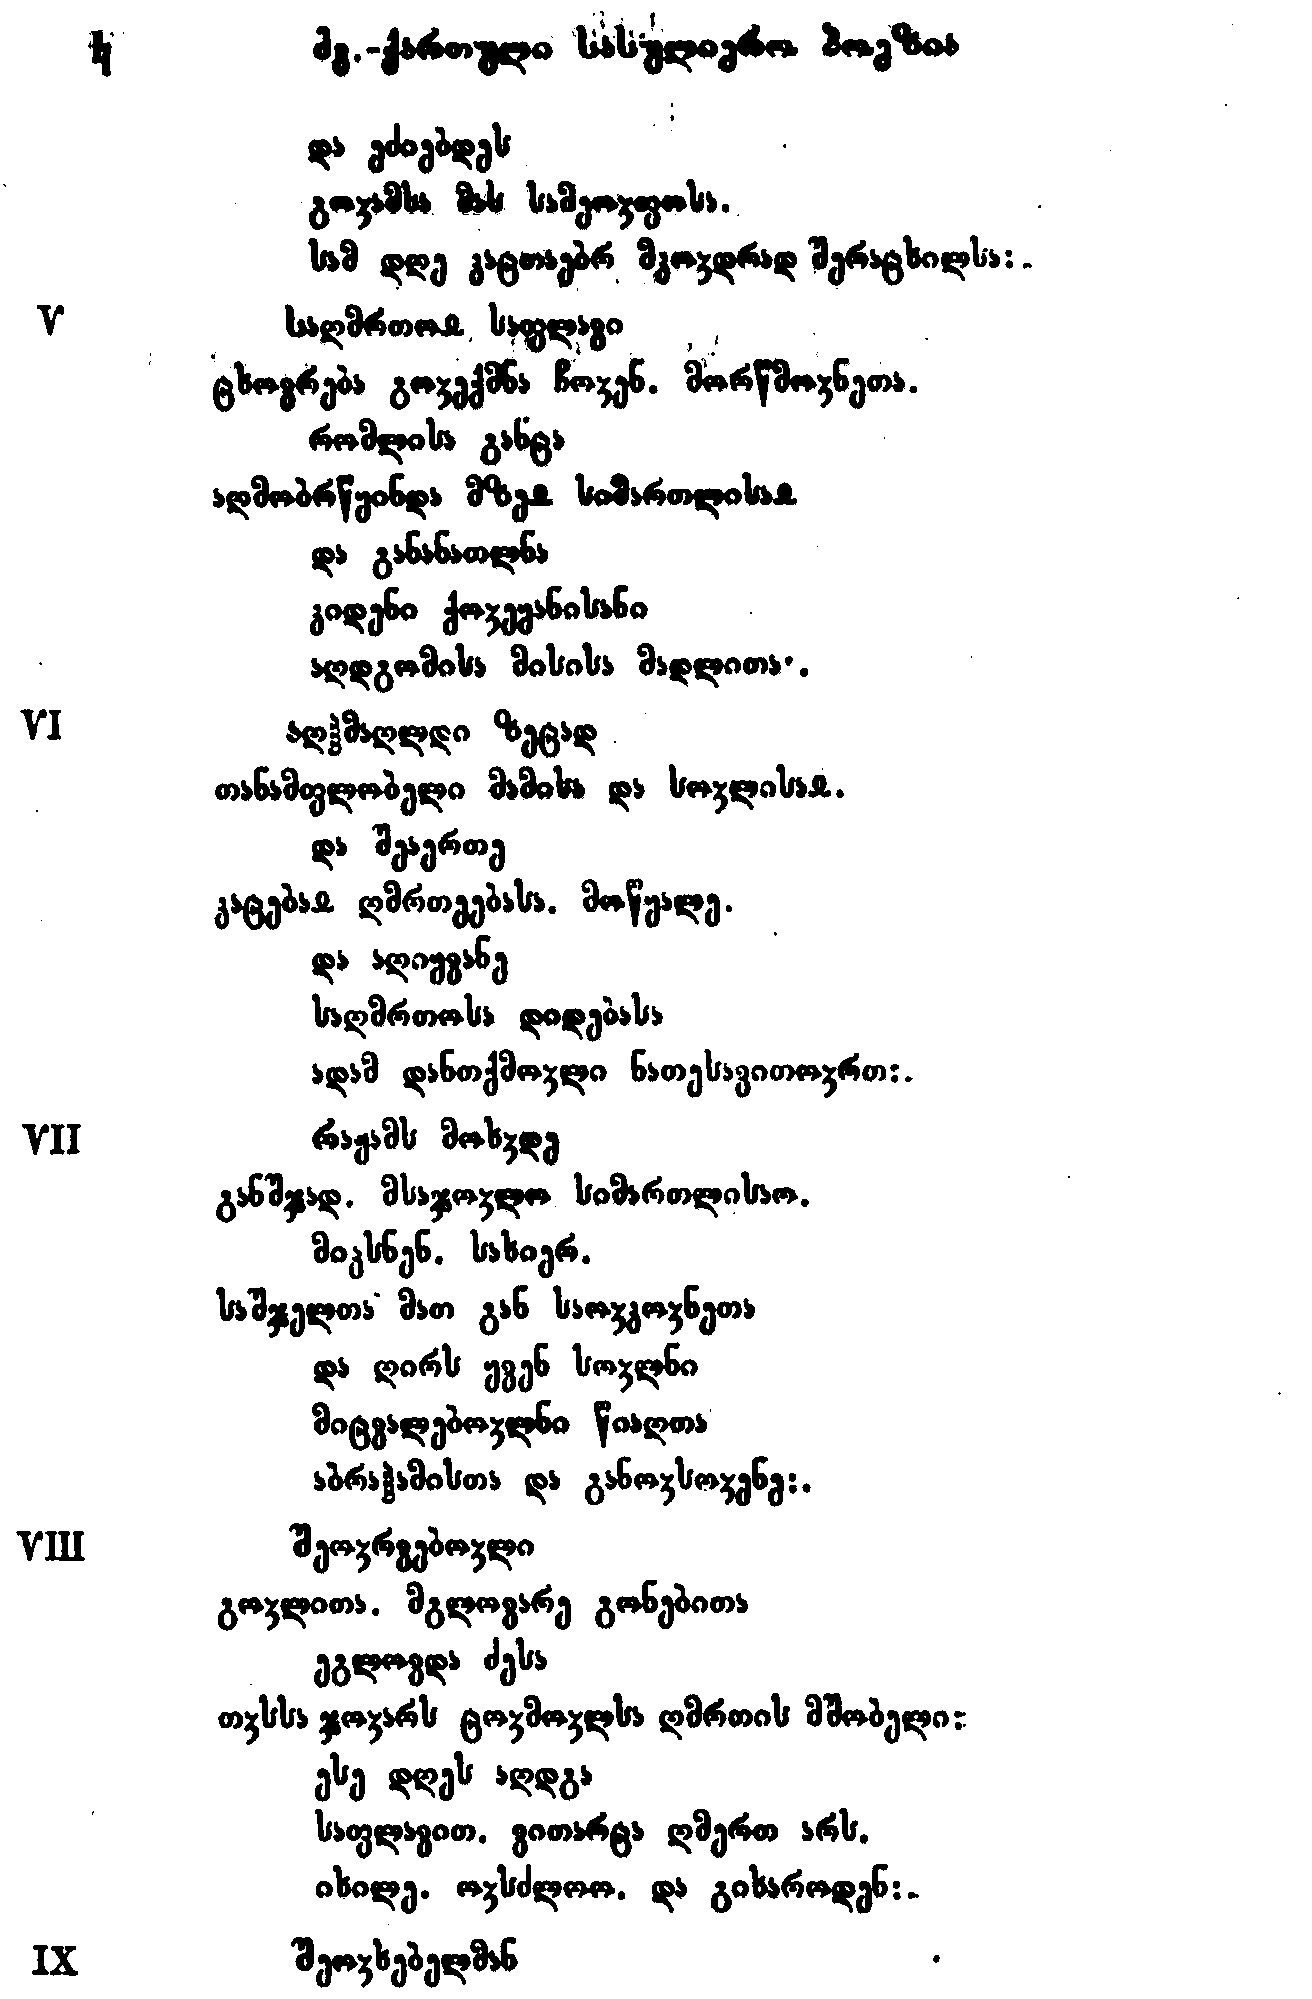 ძვ.-ქართული სასულიერო პოეზია
და ეძიებდეს
გოჳამსა მას სამეოჳფოსა.
სამ დღე კაცთაებრ მკოჳდრად შერაცხილსა:.
V საღმრთოჲ საფლავი
ცხოვრება გოჳექმნა ჩოჳენ. მორწმოჳნეთა.
რომლისა განცა
აღმობრწყინდა მზეჲ სიმართლისაჲ
და განანათლნა
კიდენი ქოჳეყანისანი
აღდგომისა მისისა მადლითა.
VI აღჰმაღლდი ზეცად
თანამფლობელი მამისა და სოჳლისაჲ.
და შეაერთე
კაცებაჲ ღმრთეებასა. მოწყალე.
და აღიყვანე
საღმრთოსა დიდებასა
ადამ დანთქმოჳლი ნათესავითოჳრთ:.
VII რაჟამს მოხჳდე
განშჯად. მსაჯოჳლო სიმართლისაო.
მიჴსნენ. სახიერ.
საშჯელთა მათ გან საოჳკოჳნეთა
და ღირს უვენ სოჳლნი
მიცვალებოჳლნი წიაღთა
აბრაჰამისთა და განოჳსოჳენე:.
VIII შეოჳრვებოჳლი
გოჳლითა. მგლოვარე გონებითა
ეგლოვდა ძესა
თჳსსა ჯოჳარს ცოჳმოჳლსა ღმრთის მშობელი:
ესე დღეს აღდგა
საფლავით. ვითარცა ღმერთ არს.
იხილე. ოჳსძლოო. და გიხაროდენ:.
IX შეოჳხებელმან